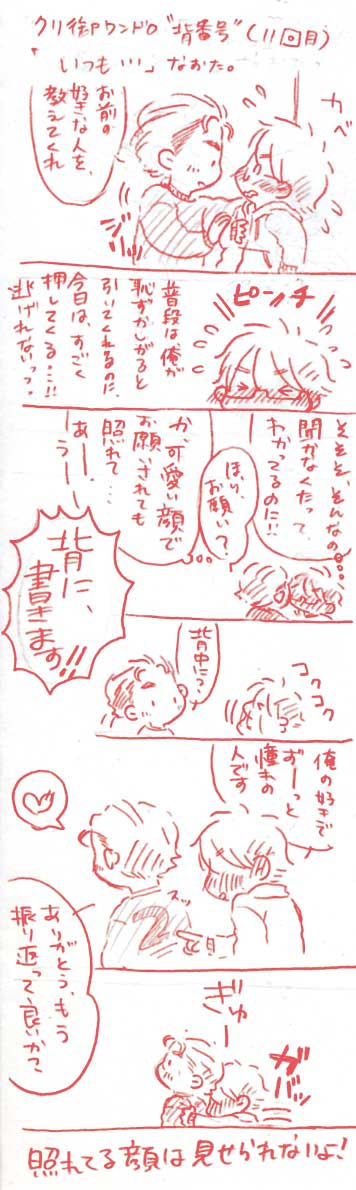 クリ御ワンドロ“背番号”(11回目)
「いつも…」なおた。
カベ
お前の
好きな人を、
教えてくれ
ピーンチ
普段は俺が
恥ずかしがると
引いてくれるのに、
今日は、すごく
押してくる…!!
逃げれないっっ。
そそそ、そんなの…
聞かなくたって、
わかってるのに!!
ほら、
お願い?
か、可愛い顔で
お願されても
照れて…
あー、
うー
背に、
書きます!!
コクコク
背中に?
俺の好きで
ずーっと
憧れの
人です
スッ
ありがとう、もう
振り返って良いか?
ぎゅー
ガバッ
照れてる顔は見せられないよ!